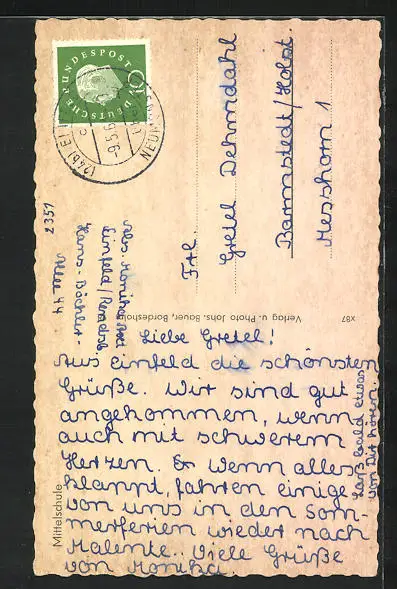 DEUTSCHE BUNDESPOST
10
(24b) EINFELD
Frl.
Gretel Dehmdahl
Barmstedt/Holst.
Messhorn 1
Abs. Monika
Einfeld/Rendsb.
Hans-Böckler-
Allee 44
2351
Verlag u. Photo Johs. Bauer, Bordesholm
x87
Mittelschule
Liebe Gretel!
Aus Einfeld die schönsten
Grüße. Wir sind gut
angekommen, wenn
auch mit schwerem
Herzen. Es wenn alles
klappt, fahren einige
von uns in den Som-
merferien wieder nach
Malente. Viele Grüße
von Monika.
Laß bald etwas
von Dir hören.